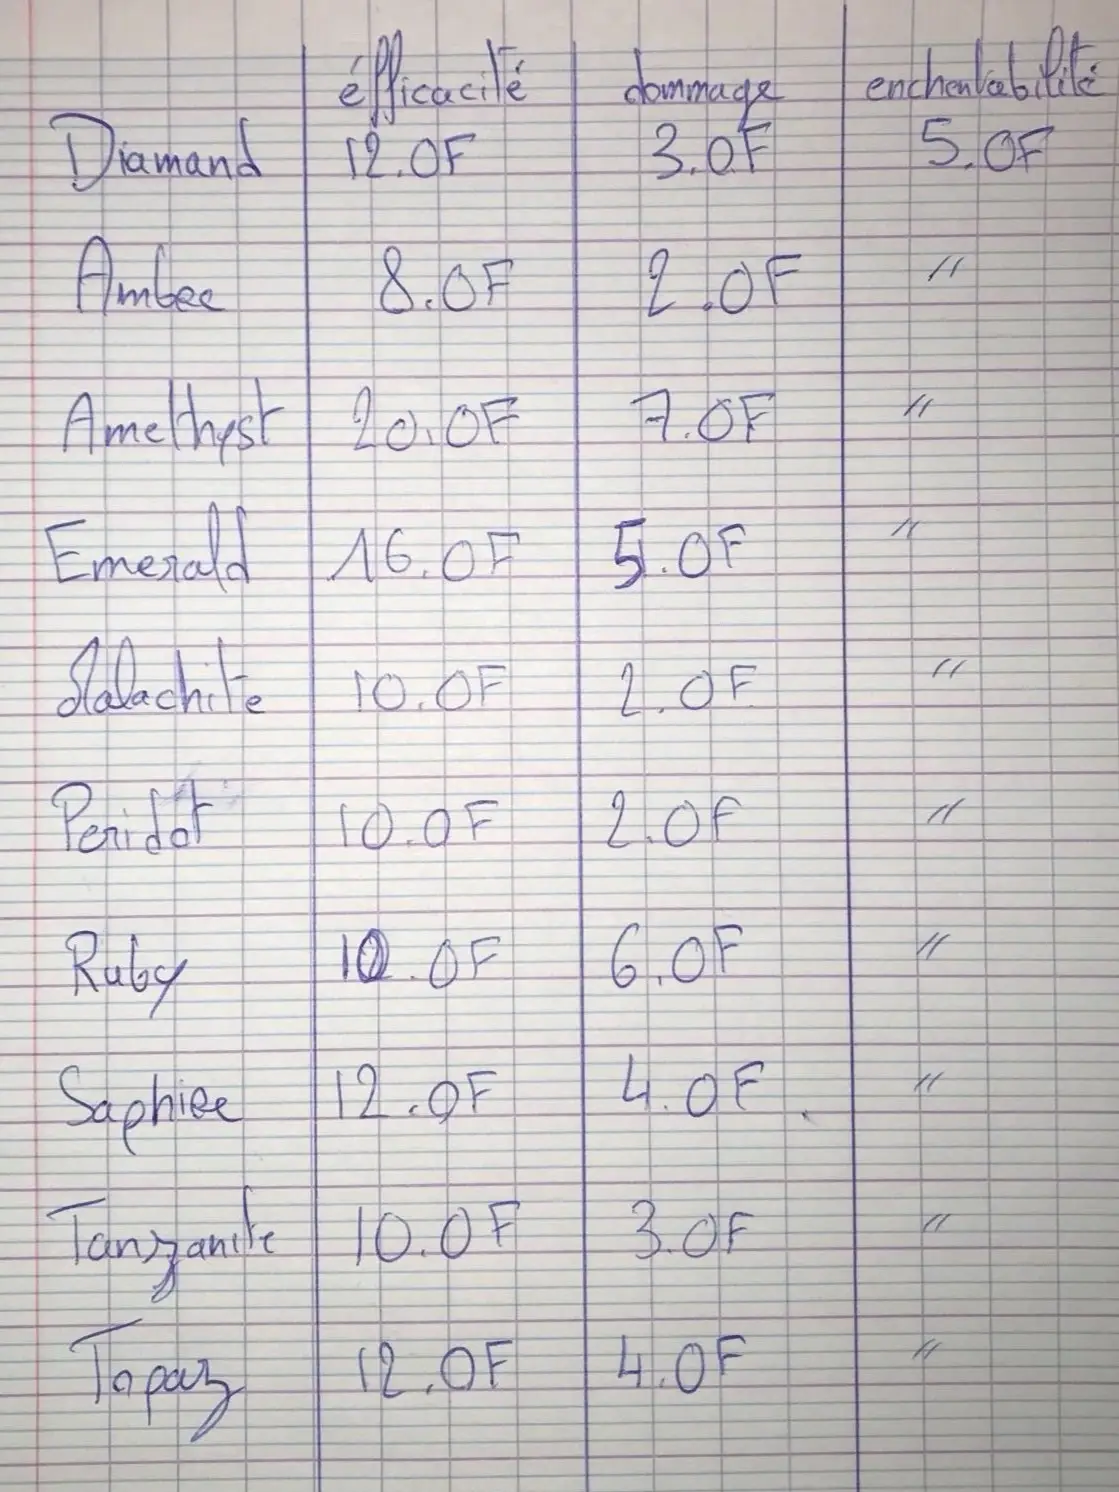 éfficacité dommage enchentabilité
Diamand 12.0F 3.0F 5.0F
Amber 8.0F 2.0F "
Amethyst 20.0F 7.0F "
Emerald 16.0F 5.0F "
Malachite 10.0F 2.0F "
Peridot 10.0F 2.0F "
Ruby 10.0F 6.0F "
Saphire 12.0F 4.0F "
Tanzanite 10.0F 3.0F "
Topaz 12.0F 4.0F "